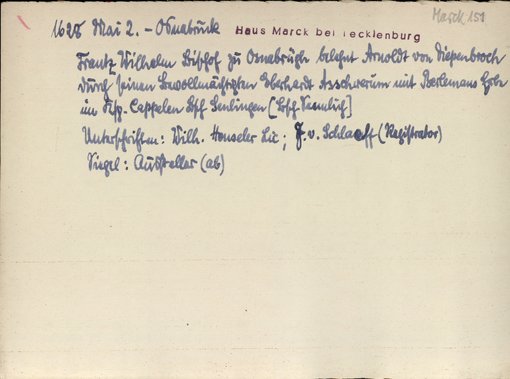 Marck 151
1628 Mai 2. - Osnabrück Haus Marck bei Tecklenburg
Frantz Wilhelm Bischof zu Osnabrügh belehnt Arnoldt von Diepenbroch
durch seinen Bevollmächtigten Eberhardt Asschwerum mit Bertemans Erbe
im Ksp. Cappelen Bsch
Unterschriften: Wilh. Henseler Lic; F. v. Schlaeff (Registrator)
Siegel: Aussteller (ab)